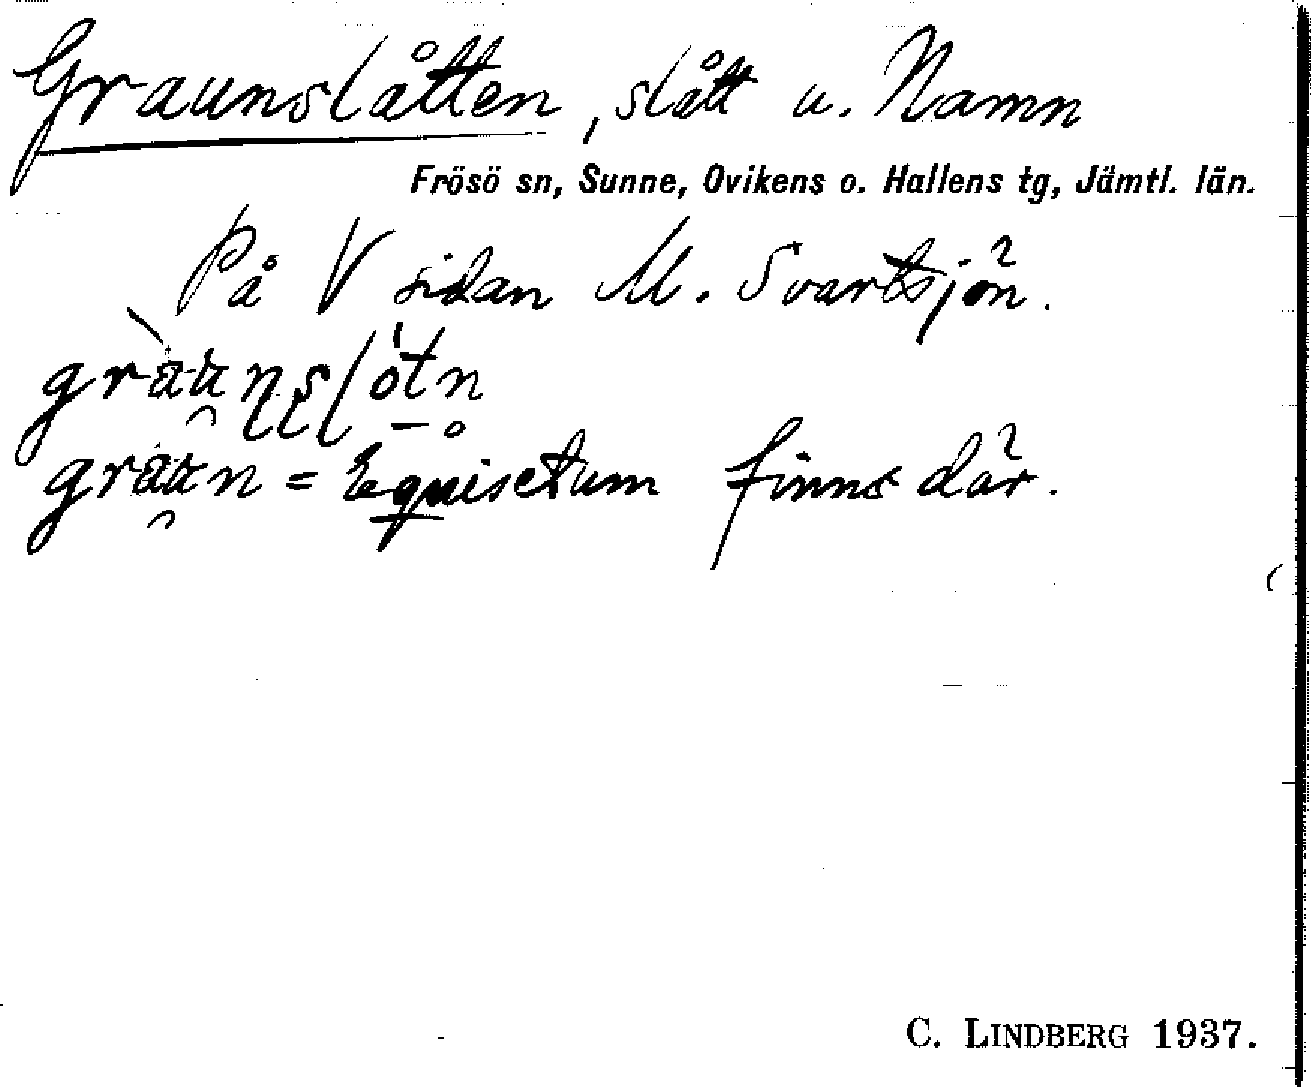 Graunslåtten, slått u. Namn
Frösö sn, Sunne, Ovikens o. Hallens tg, Jämtl. län.
På V sidan M. Svartsjön.
gräun = Equisetum finns där.
C. LINDBERG 1937.